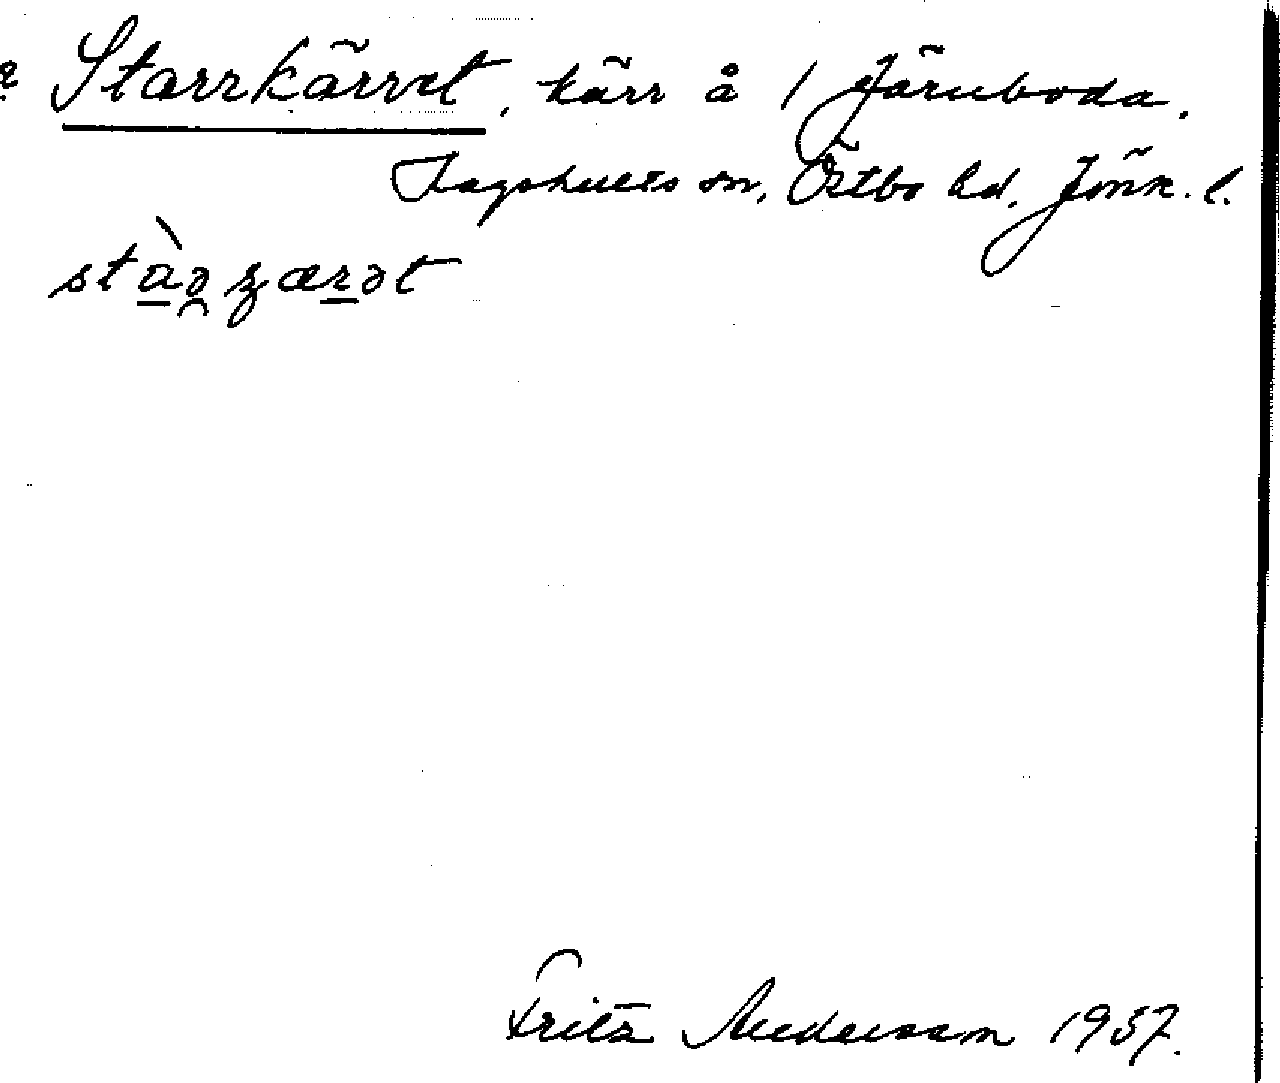 Starrkärret, kärr å 1 Järnboda.
Kagshults sn, Östbo hd. Jönk. l.
Fritz Andersson 1957.